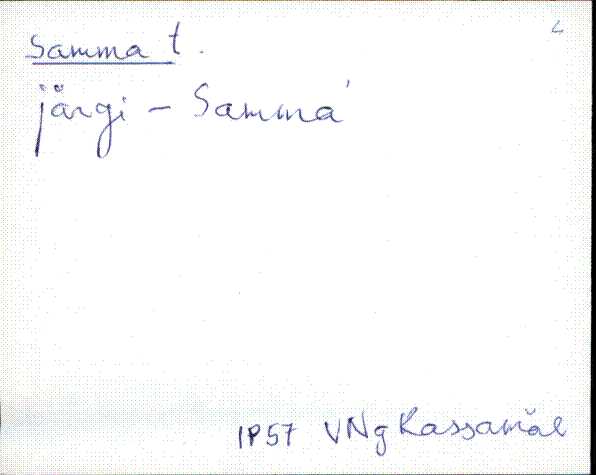 Samma t.
järgi - Samma'
IP57 VNg Kassamäe